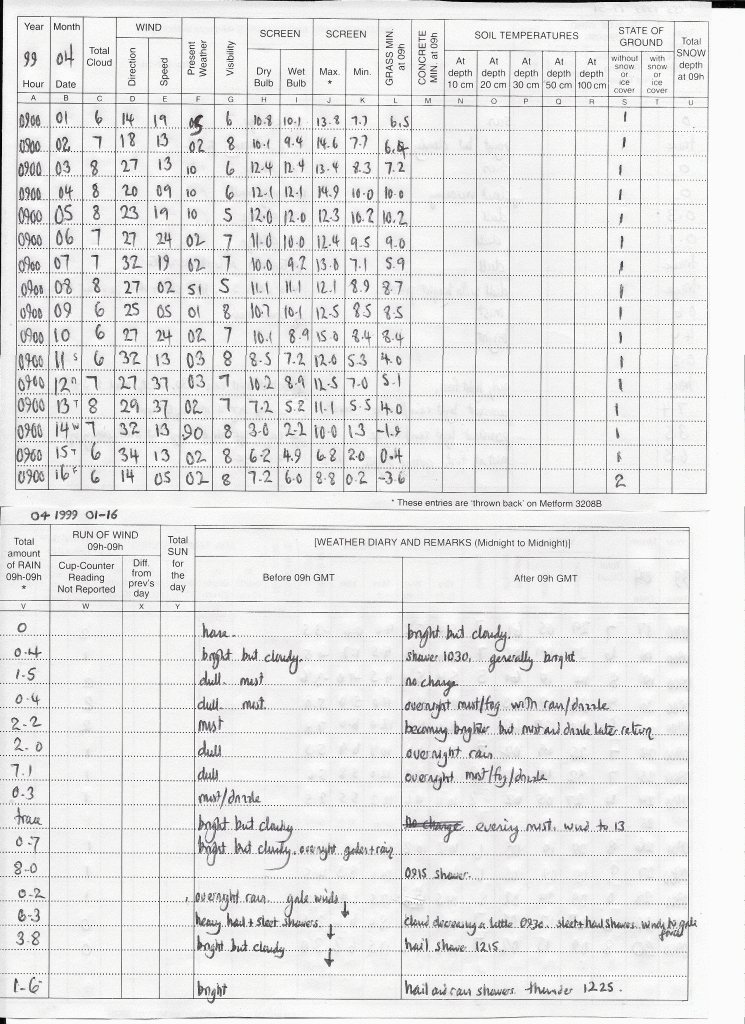 Year Month Total Cloud WIND Present Weather Visibility SCREEN SCREEN GRASS MIN. at 09h CONCRETE MIN. at 09h SOIL TEMPERATURES STATE OF GROUND Total SNOW depth at 09h
99 04 Direction Speed Dry Bulb Wet Bulb Max. * Min. At depth 10 cm At depth 20 cm At depth 30 cm At depth 50 cm At depth 100 cm without snow or ice cover with snow or ice cover
Hour Date
A B C D E F G H I J K L M N O P Q R S T U
0900 01 6 14 19 05 6 10.8 10.1 13.8 7.7 6.5 1
0900 02 7 18 13 02 8 10.1 9.4 14.6 7.7 1
0900 03 8 27 13 10 6 12.4 12.4 13.4 8.3 7.2 1
0900 04 8 20 09 10 6 12.1 12.1 14.9 10.0 10.0 1
0900 05 8 23 19 10 5 12.0 12.0 12.3 10.2 10.2 1
0900 06 7 27 24 02 7 11.0 10.0 12.4 9.5 9.0 1
0900 07 7 32 19 02 7 10.0 9.2 13.0 7.1 5.9 1
0900 08 8 27 02 51 5 11.1 11.1 12.1 8.9 8.7 1
0900 09 6 25 05 01 8 10.7 10.1 12.5 8.5 8.5 1
0900 10 6 27 24 02 7 10.1 8.9 15.0 8.4 8.4 1
0900 11 S 6 32 13 03 8 8.5 7.2 12.0 5.3 4.0 1
0900 12 7 27 37 03 7 10.2 8.9 12.5 7.0 5.1 1
0900 13 T 8 29 37 02 7 7.2 5.2 11.1 5.5 4.0 1
0900 14 W 7 32 13 90 8 3.0 2.2 10.0 1.3 -1.9 1
0900 15 T 6 34 13 02 8 6.2 4.9 6.8 2.0 0.4 1
0900 16 F 6 14 05 02 8 7.2 6.0 8.8 0.2 -3.6 2
* These entries are 'thrown back' on Metform 3208B
04 1999 01-16
Total amount of RAIN 09h-09h * RUN OF WIND 09h-09h Total SUN for the day [WEATHER DIARY AND REMARKS (Midnight to Midnight)]
Cup-Counter Reading Not Reported Diff. from prev's day Before 09h GMT After 09h GMT
V W X Y
0 haze. bright but cloudy.
0.4 bright but cloudy. shower 1030, generally bright
1.5 dull mist no change
0.4 dull mist. overnight mist/fog with rain/drizzle
2.2 mist becoming brighter but mist and drizzle later return
2.0 dull overnight rain
7.1 dull overnight mist/fog/drizzle
0.3 mist/drizzle
trace bright but cloudy no change evening mist, wind to 13
0.7 bright but cloudy. overnight gales + rain
8.0 0915 shower.
0.2 overnight rain gale winds ↓
6.3 heavy hail + sleet showers ↓ cloud decreasing a little 0930 sleet + hail showers windy to gale force
3.8 bright but cloudy ↓ hail shower 1215.
1.6 bright hail and rain showers thunder 1225.